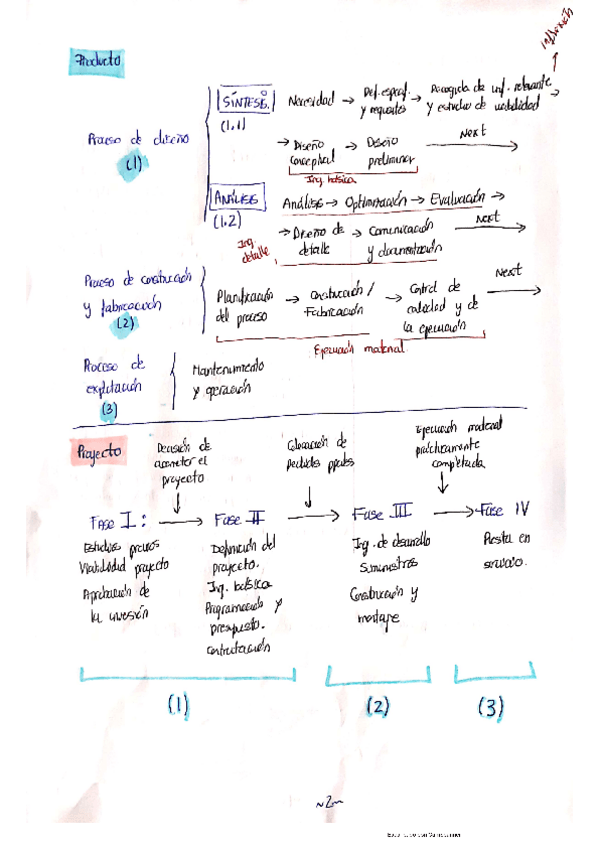 Producto
Proceso de diseño
(1)
SÍNTESIS.
(1.1)
Necesidad → Def. especif. y requisitos → Recogida de inf. relevante y estudio de viabilidad →
→ Diseño conceptual → Diseño preliminar
Next
Ing. básica
ANÁLISIS
(1.2)
Análisis → Optimización → Evaluación →
→ Diseño de detalle → Comunicación y documentación
Next
Ing. detalle
Proceso de construcción
y fabricación
(2)
Planificación del proceso → Construcción / Fabricación → Control de calidad y de la ejecución
Next
Ejecución material
Proceso de
explotación
(3)
Mantenimiento
y operación
Proyecto
Decisión de
acometer el
proyecto
Colocación de
pedidos ppales
Ejecución material
prácticamente
completada
FASE I: → Fase II → Fase III → Fase IV
Estudios previos
Viabilidad proyecto
Aprobación de
la inversión
Definición del
proyecto.
Ing. básica
Programación y
presupuesto.
Contratación
Ing. de desarrollo
Suministros
Construcción y
montaje
Puesta en
servicio.
(1)
(2)
(3)
~2~